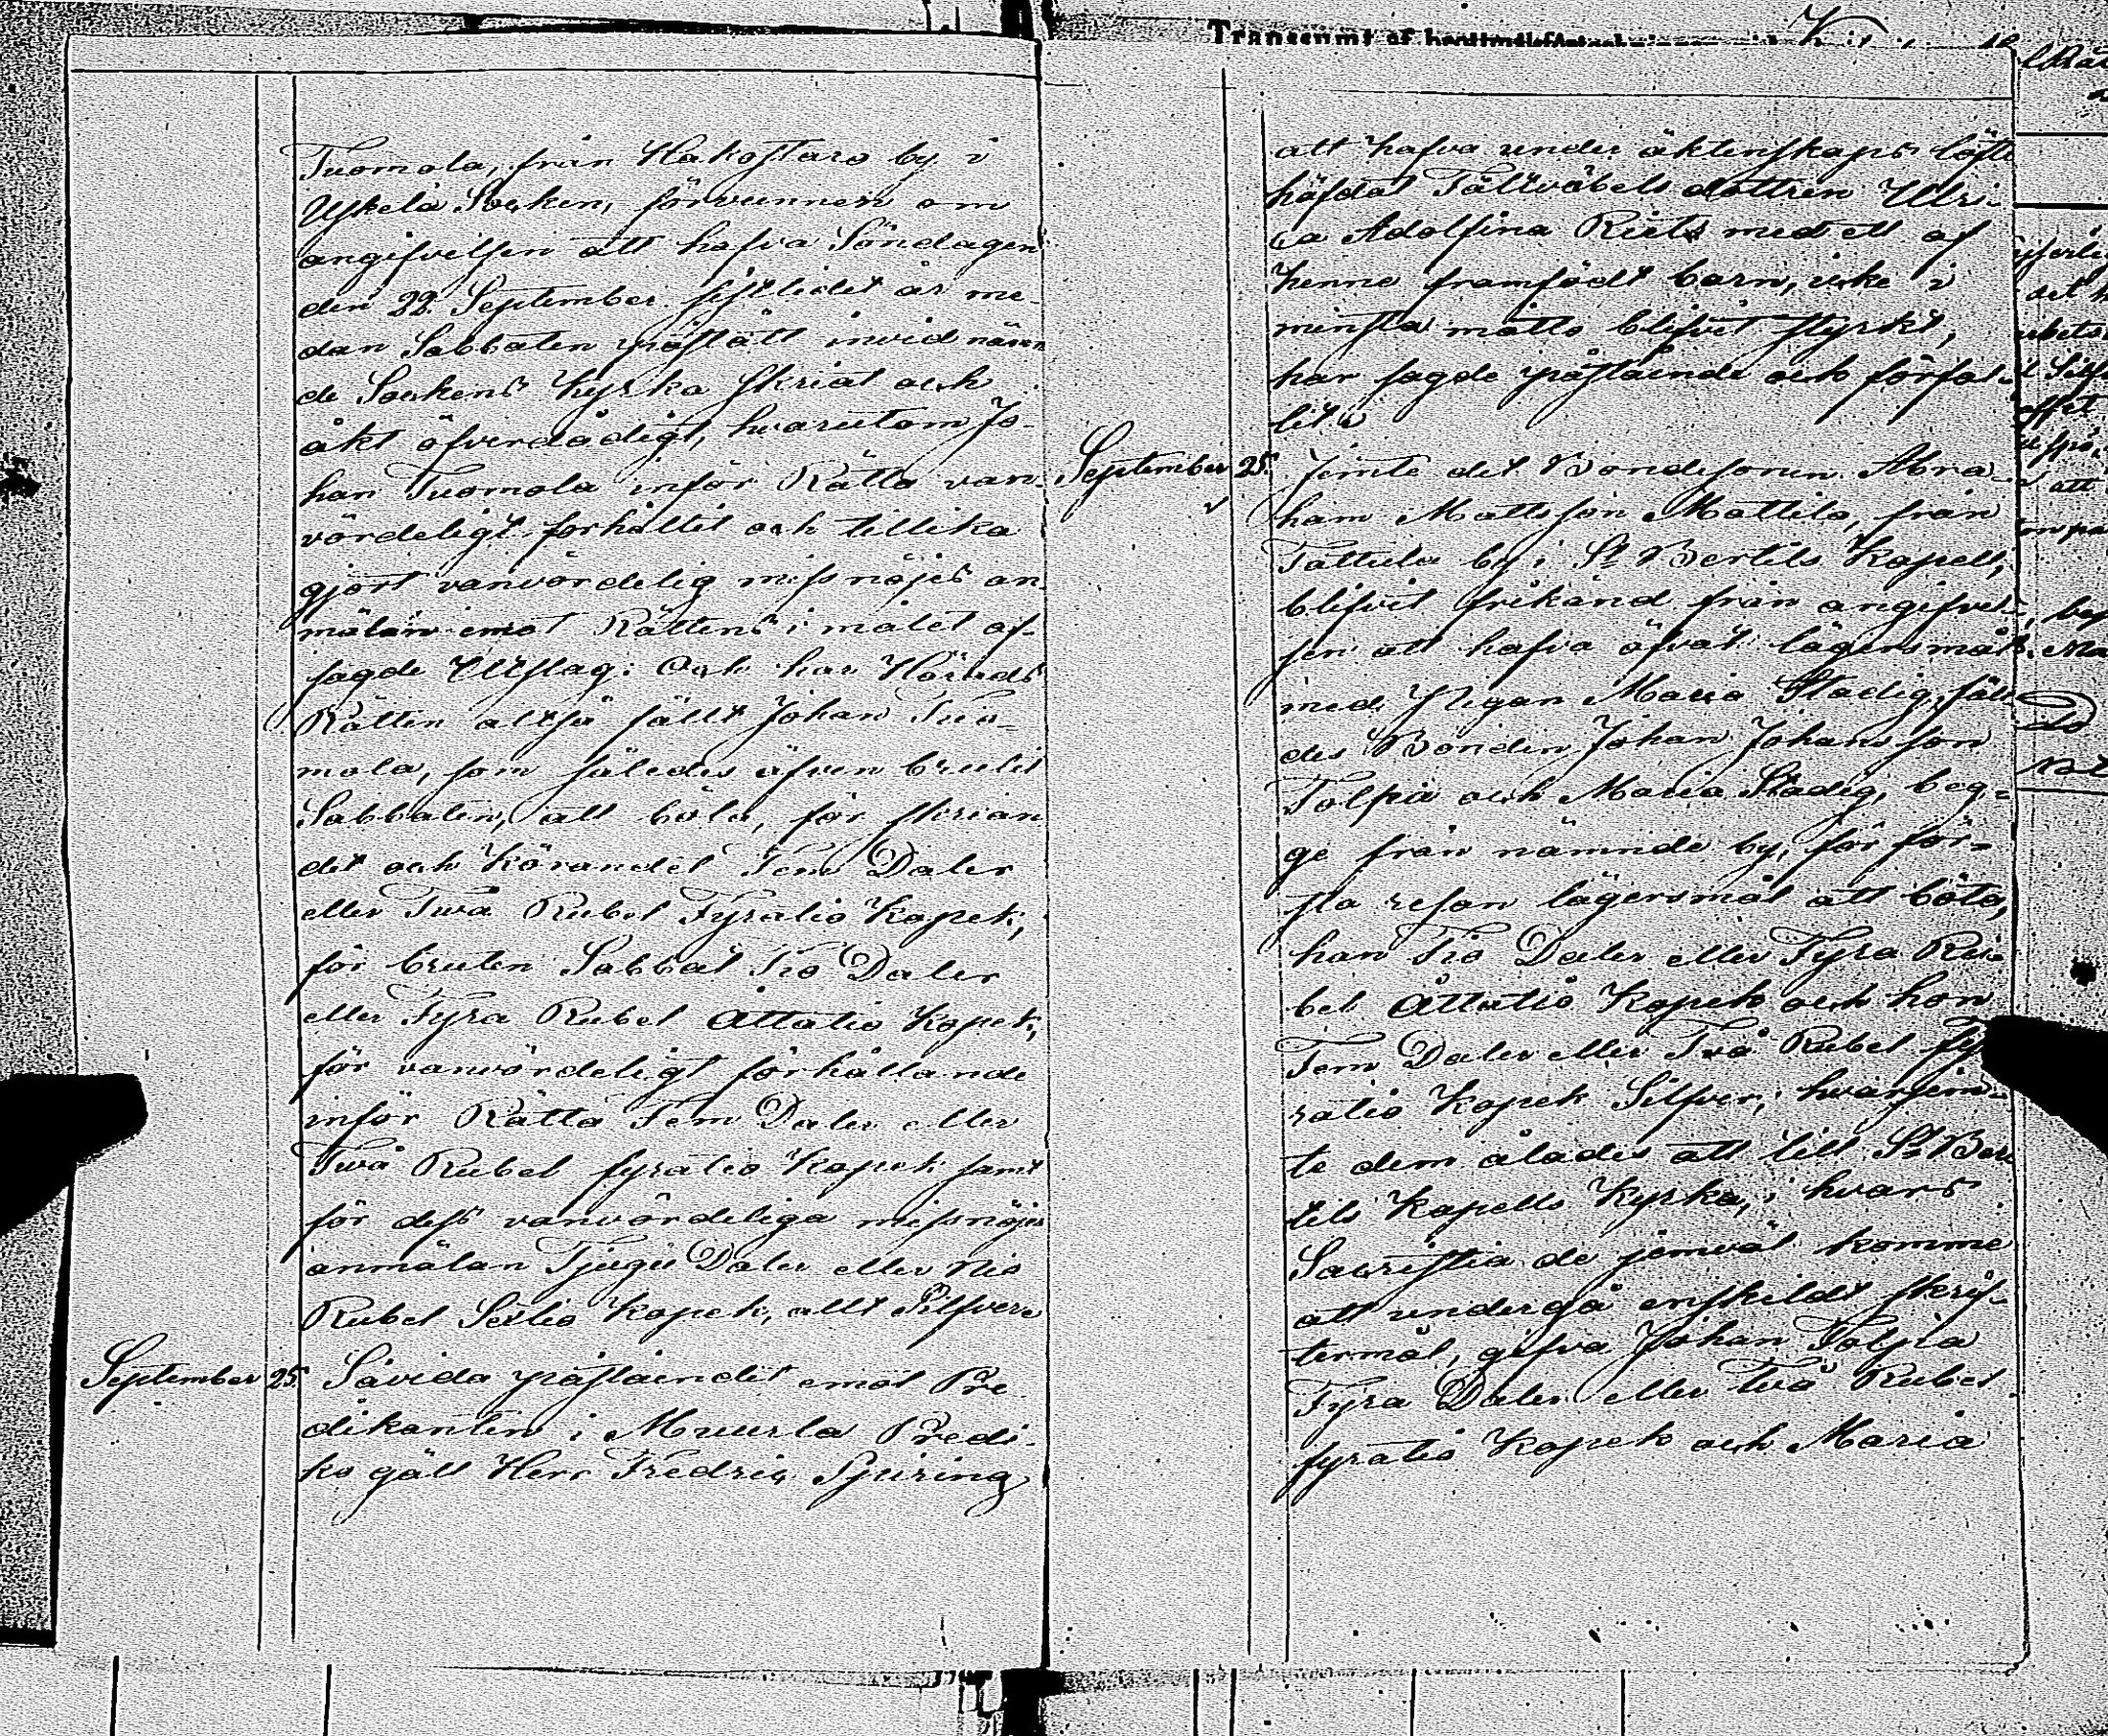 Tuomola, från Hakostaro by i
Uskela Socken, förvunnen om
angifvelsen att hafva Söndagen
den 22 September sistledit år me-
dan Sabbaten påstått invid nämn
de Sockens Kyrka skriat och
åkt öfverdådigt, hvarutom Jo-
han Tuomola inför Rätta van-
vördeligt förhållit och tillika
gjort vanvördelig missnöjes an-
mälan emot Rättens i målet af-
sagde Utslag: Och har Härads
Rätten altså fällt Johan Tuo-
mola, som således äfven brutit
Sabbaten, att böta, för skrian
det och Körandet Fem Daler
eller Twå Rubel Fyratio Kopek,
för bruten Sabbat Tio Daler
eller Fyra Rubel Åttatio Kopek,
för vanvördeligt förhållande
inför Rätta Fem Daler eller
Twå Rubel fyratio Kopek samt
för dess vanvördeliga missnöjes
anmälan Tjugu Daler eller Nio
Rubel Sextio Kopek, allt Silfver
September 25. Såvida påståendet emot Pre
dikanten i Muurla Predi-
ko gäll Herr Fredric Spuring
att hafva under äktenskaps löfte
häfdat Fältväbels dottren Ulri-
ca Adolfina Riets med ett af
henne framfödt barn, icke i
minsta måtto blifvit styrkt,
har sagde påstående och förfal-
lit.
September 25. Jemte det Bondesonen Abra-
ham Mattsson Mattila, från
Tattula by i St Bertils Kapell,
blifvit frikänd från angifvel-
sen att hafva öfvat lägersmål
med Pigan Maria Stadig, fäll-
des Bonden Johan Johansson
Tolpia och Maria Stadig, beg-
ge från nämnde by, för för-
sta resan lägersmål att böta,
han Tio Daler eller Fyra Ru-
bel Åttatio Kopek och hon
Fem Daler eller Två Rubel fy
ratio Kopek Silfver, hvarjem-
te dem ålades att till St Ber
tils Kapells Kyrka, i hvars
Sacristia de jemväl komme
att undergå enskildt skrif-
termål, gifva Johan Tolpia
Fyra Daler eller Två Rubel
fyratio Kopek och Maria